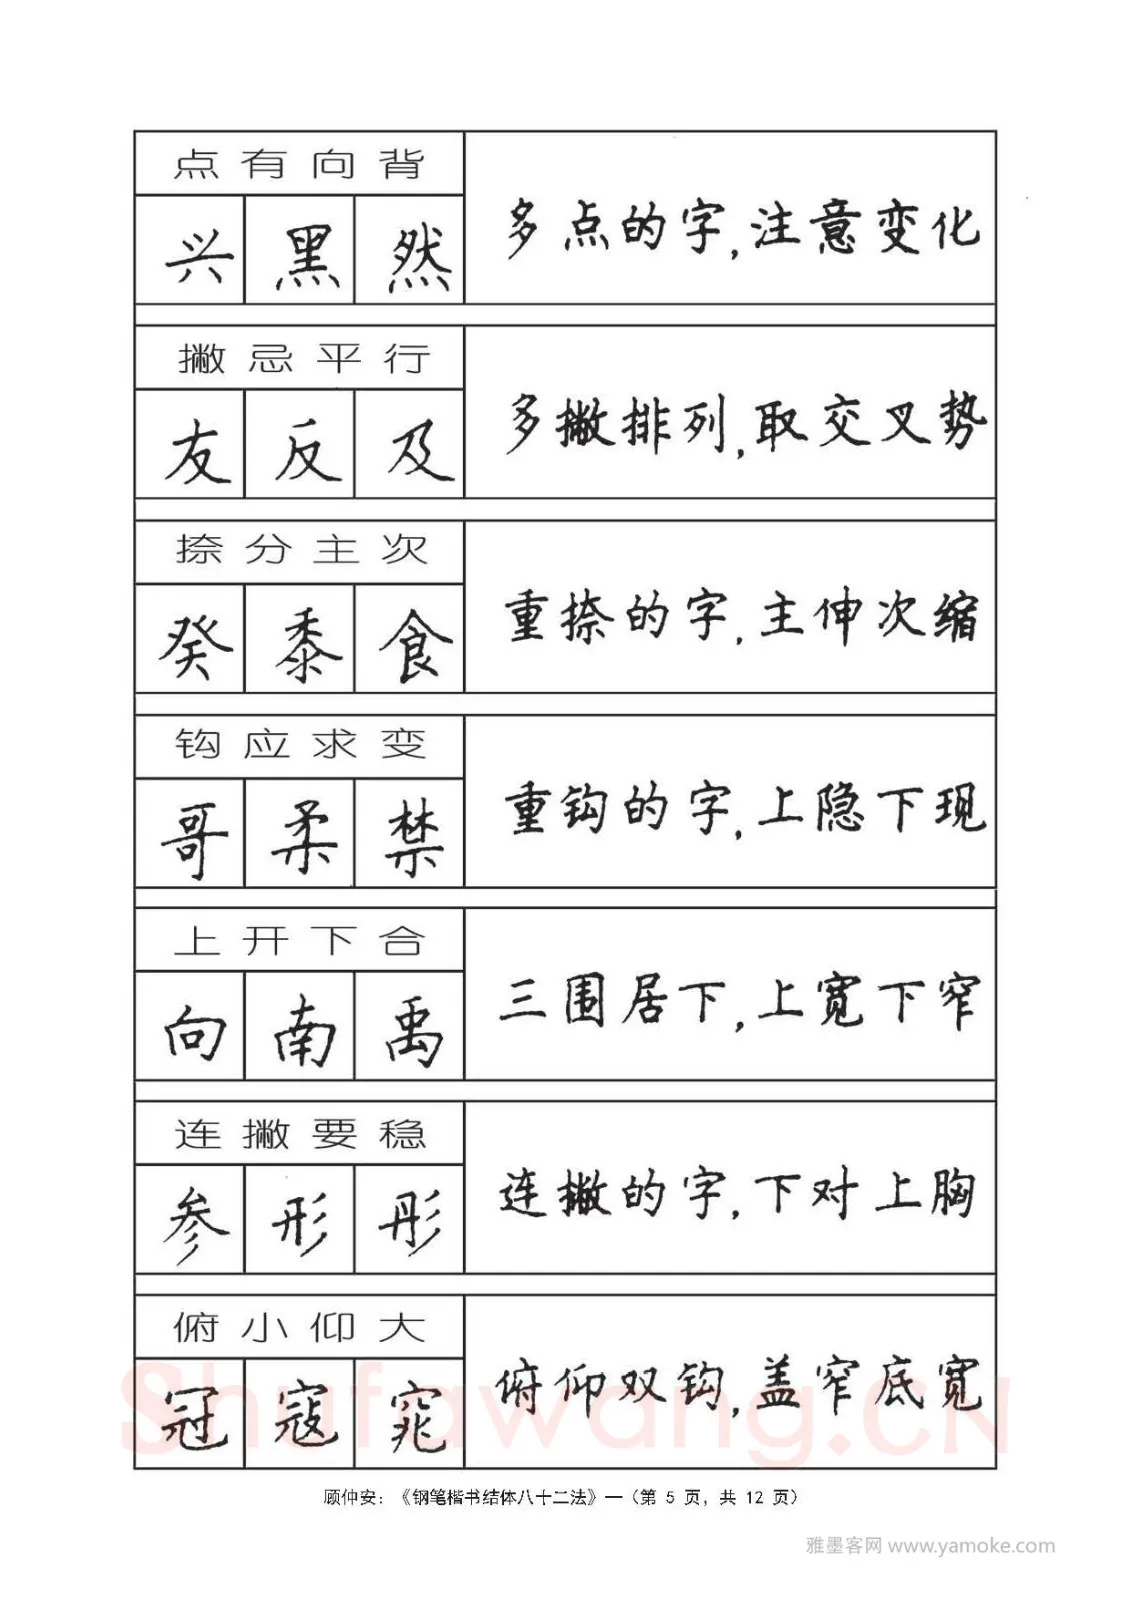 点有向背
兴 黑 然
多点的字,注意变化
撇忌平行
友 反 及
多撇排列,取交叉势
捺分主次
癸 黍 食
重捺的字,主伸次缩
钩应求变
哥 柔 禁
重钩的字,上隐下现
上开下合
向 南 禹
三围居下,上宽下窄
连撇要稳
参 形 彤
连撇的字,下对上胸
俯小仰大
冠 寇 窕
俯仰双钩,盖窄底宽
Shufawang.CN
顾仲安:《钢笔楷书结体八十二法》—(第 5 页, 共 12 页)
雅墨客网 www.yamoke.com